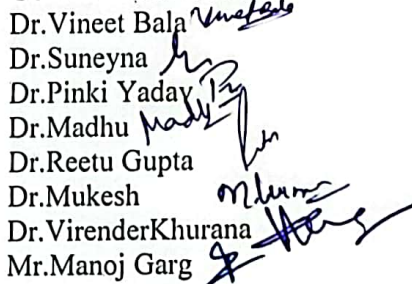 Dr.Vineet Bala
Dr.Suneyna
Dr.Pinki Yadav
Dr.Madhu
Dr.Reetu Gupta
Dr.Mukesh
Dr.VirenderKhurana
Mr.Manoj Garg